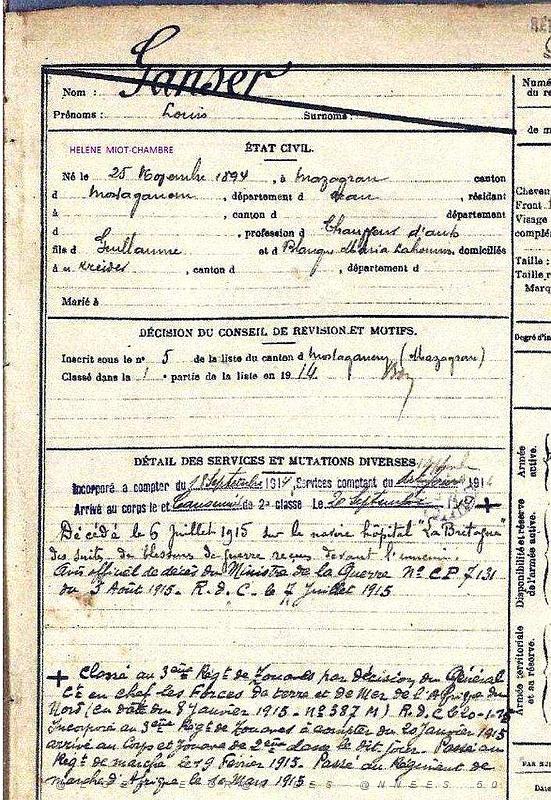 Ganser
Nom :
Prénoms : Louis Surnoms :
HELENE MIOT-CHAMBRE
ÉTAT CIVIL.
Né le 25 Novembre 1894, à Mazagran canton
d Mostaganem, département d Oran, résidant
à , canton d département
d , profession d Chauffeur d'auto
fils d Guillaume et d Blanque Maria domiciliés
à , canton d , département d
Marié à
DÉCISION DU CONSEIL DE REVISION ET MOTIFS.
Inscrit sous le n° 5 de la liste du canton d Mostaganem (Mazagran)
Classé dans la 1e partie de la liste en 1914.
DÉTAIL DES SERVICES ET MUTATIONS DIVERSES
Incorporé à compter du 1914, Services comptant du 191
Arrivé au corps le et de 2e classe Le 20 Septembre
Décédé le 6 Juillet 1915 sur le navire hôpital "La Bretagne"
des suites de blessures de guerre reçues devant l'ennemi.
Avis officiel de décès du Ministre de la Guerre N° C.P. 7131
du 3 Août 1915. R.d.C. le 7 Juillet 1915
+ Classé au 3ème Régt de Zouaves par décision du Général
Ct en chef les Forces de terre et de Mer de l'Afrique du
Nord (en date du 8 Janvier 1915. N° 387 M) R.d.C le 20-1-15
Incorporé au 3ème Régt de Zouaves à compter du 20 Janvier 1915
arrivé au Corps et Zouave de 2ème classe le dit jour. Passé au
Régt de marche le 19 Février 1915. Passé au Régiment de
marche d'Afrique le 1er Mars 1915
Numé
du re
de m
Cheveu
Front
Visage
complé
Taille :
Taille r
Marq
Degré d'in
Armée active.
Disponibilité et réserve de l'armée active.
Armée territoriale et sa réserve.